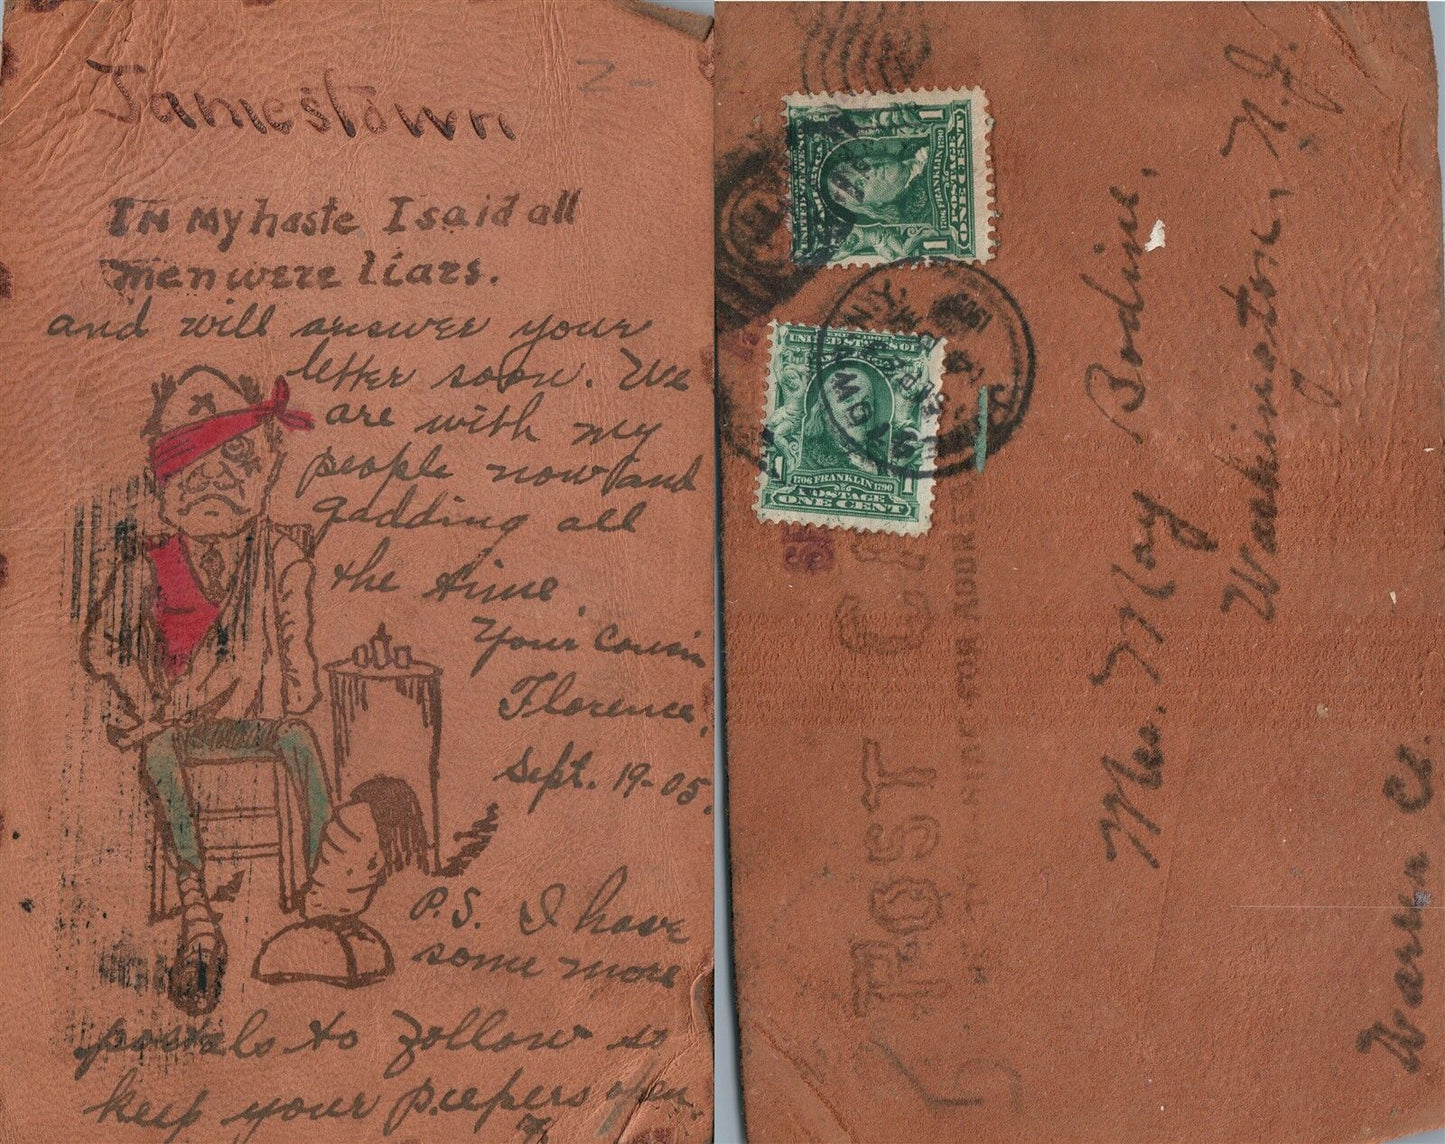 Jamestown
2-
In my haste I said all
men were liars.
and will answer your
letter soon. We
are with my
people now and
gadding all
the time.
Your cousin
Florence.
Sept. 19-05.
P.S. I have
some more
postals to follow so
keep your peepers open.
1
UNITED STATES OF
1706 FRANKLIN 1790
POSTAGE
ONE CENT
1
UNITED STATES OF
1706 FRANKLIN 1790
POSTAGE
ONE CENT
TOWN N.Y.
SEP
1905
POST CA
FOR ADDRE
Mrs. May Bodine,
Washington, N.J.
Warren Co.